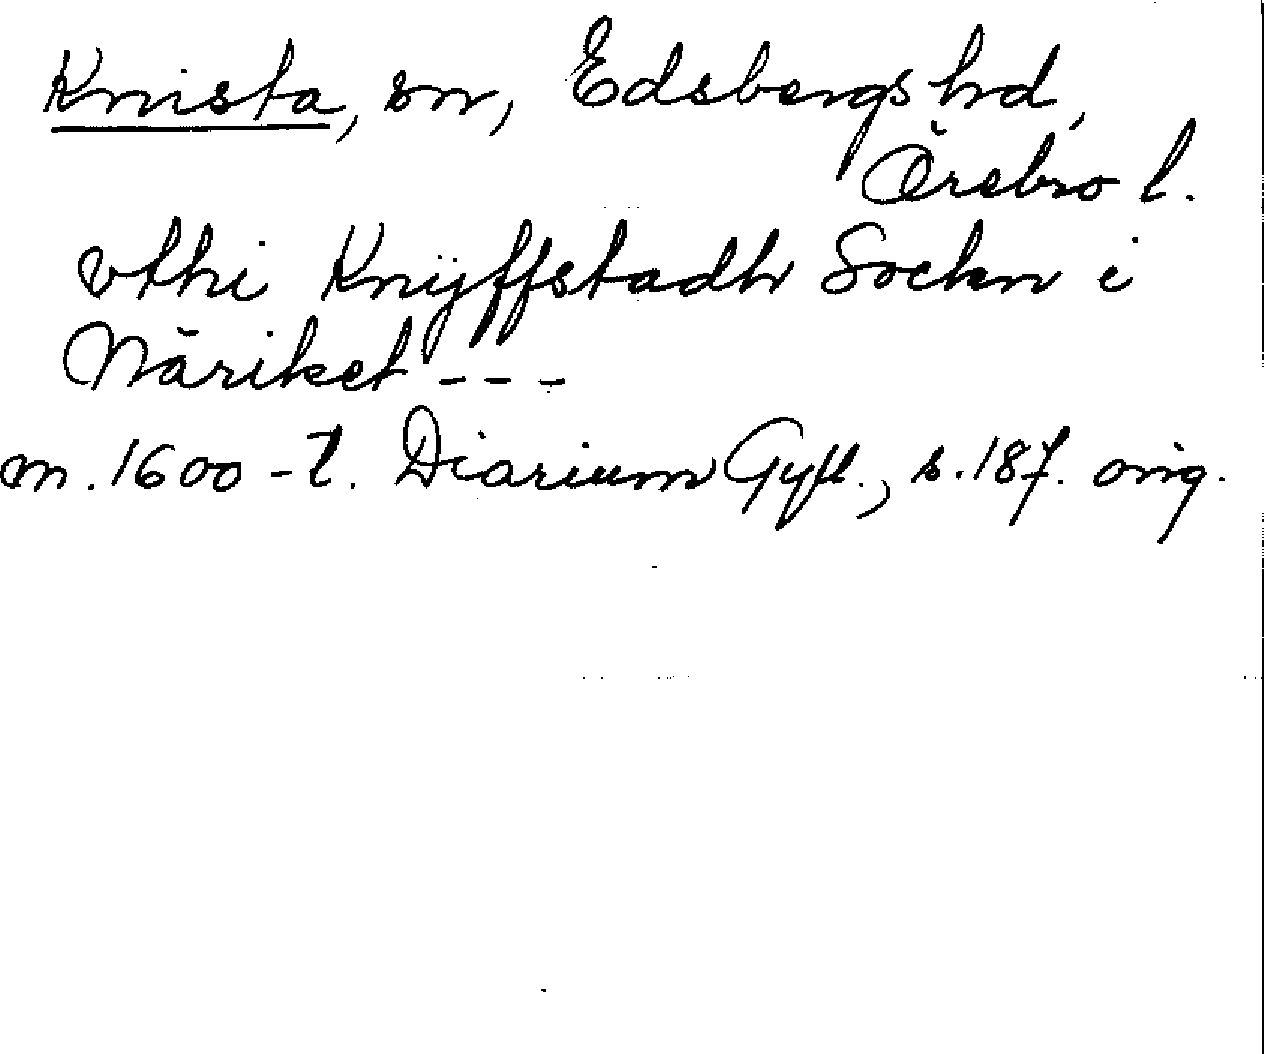 Knista, sn, Edsbergs hd,
Örebro l.
vthi Knÿffstadh Sockn i
Näriket - - -
m. 1600-t. Diarium Gyll., s. 187. orig.